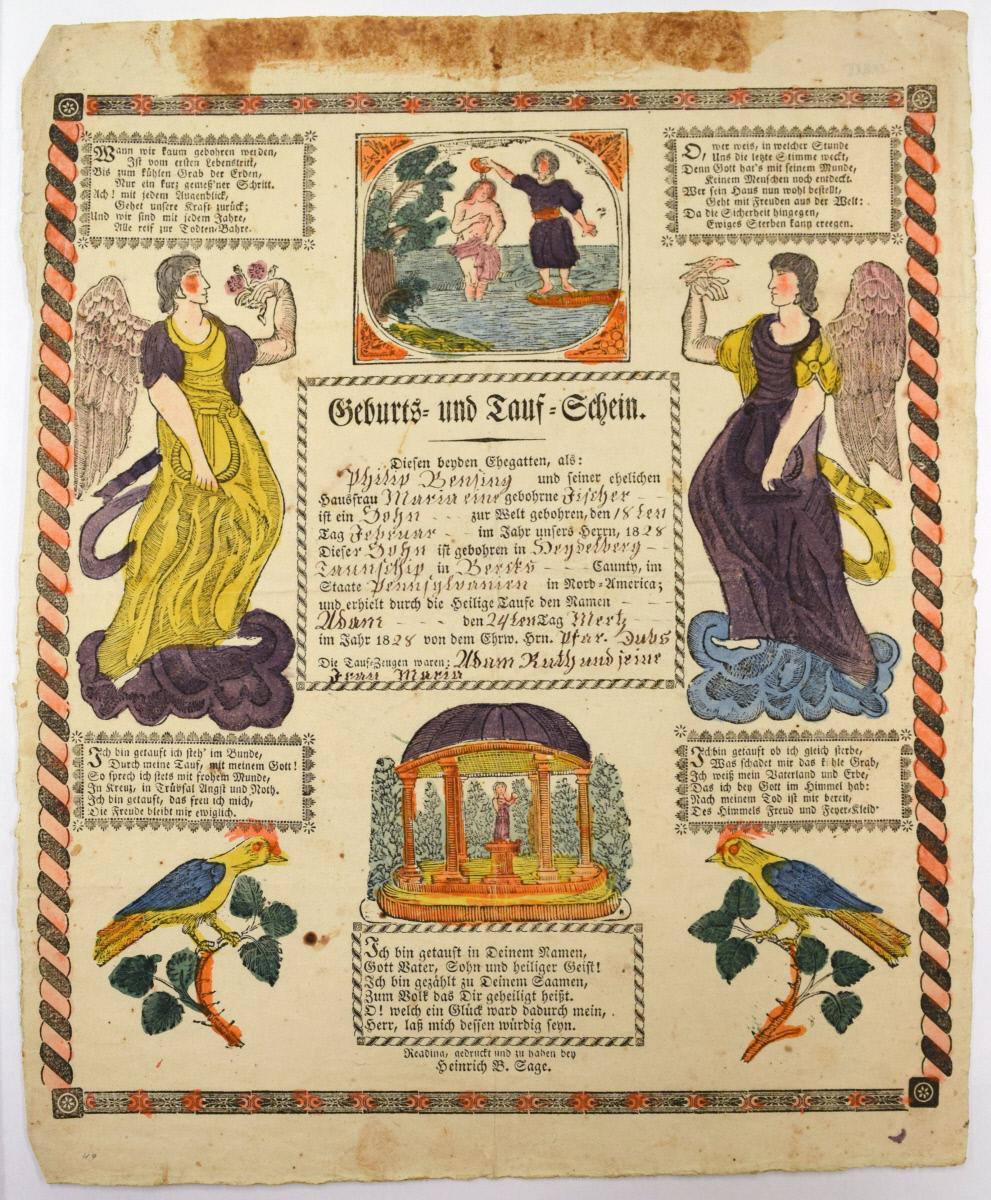 Wann wir kaum gebohren werden,
Ist vom ersten Lebenstritt,
Bis zum kühlen Grab der Erden,
Nur ein kurz gemeß'ner Schritt.
Ach! mit jedem Augenblick,
Gehet unsere Kraft zurück;
Und wir sind mit jedem Jahre,
Alle reif zur Todten-Bahre.
O, wer weis, in welcher Stunde
Uns die letzte Stimme weckt,
Denn Gott hat's mit seinem Munde,
Keinem Menschen noch entdeckt.
Wer sein Haus nun wohl bestellt,
Geht mit Freuden aus der Welt:
Da die Sicherheit hingegen,
Ewiges Sterben kann erregen.
Geburts- und Tauf-Schein.
Diesen beyden Ehegatten, als:
Philip Bensing und seiner ehelichen
Hausfrau Maria eine gebohrne Fischer
ist ein Sohn zur Welt gebohren, den 18ten
Tag Februar im Jahr unsers Herrn, 1828
Dieser Sohn ist gebohren in Heydelberg
Taunschip in Bercks Caunty, im
Staate Pennsylvanien in Nord-America;
und erhielt durch die Heilige Taufe den Namen
Adam den 24ten Tag Mertz
im Jahr 1828 von dem Ehrw. Hrn. Pfar. Dubs
Die Tauf-Zeugen waren: Adam Ruth und seine
Frau Maria
Ich bin getauft ich steh' im Bunde,
Durch meine Tauf, mit meinem Gott!
So sprech ich stets mit frohem Munde,
In Kreuz, in Trübsal Angst und Noth.
Ich bin getauft, das freu ich mich,
Die Freude bleibt mir ewiglich.
Ich bin getauft ob ich gleich sterbe,
Was schadet mir das kühle Grab,
Ich weiß mein Vaterland und Erbe,
Das ich bey Gott im Himmel hab:
Nach meinem Tod ist mir bereit,
Des Himmels Freud und Feyer-Kleid
Ich bin getauft in Deinem Namen,
Gott Vater, Sohn und heiliger Geist!
Ich bin gezählt zu Deinem Saamen,
Zum Volk das Dir geheiligt heißt.
O! welch ein Glück ward dadurch mein,
Herr, laß mich dessen würdig seyn.
Reading, gedruckt und zu haben bey
Heinrich B. Sage.